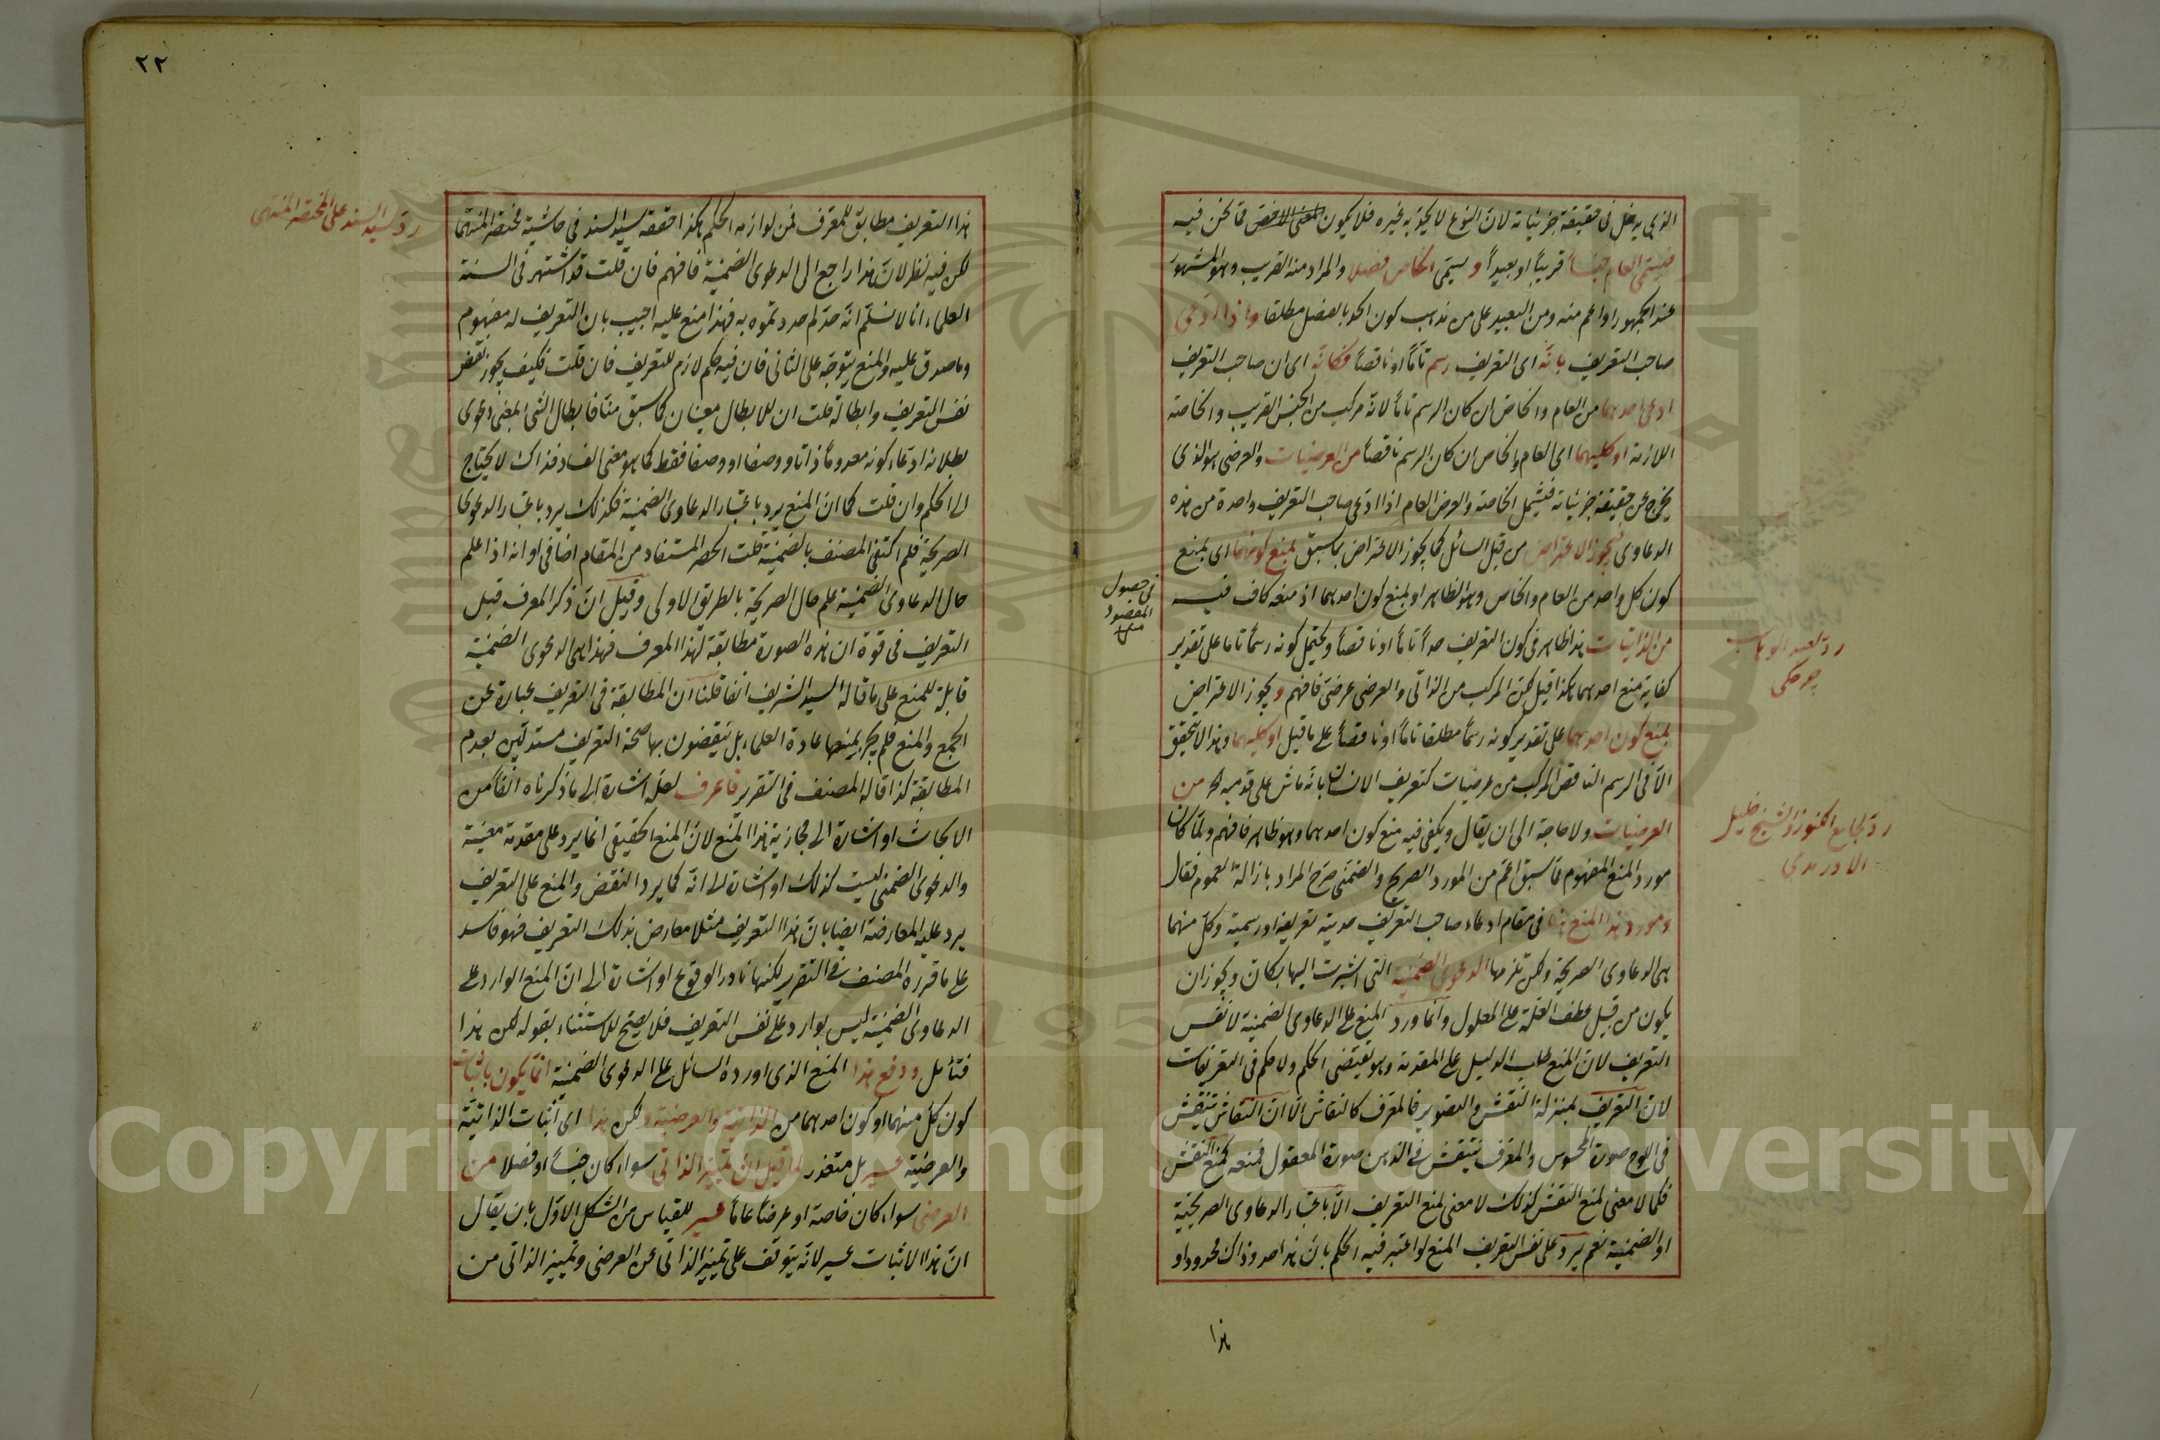 الذي يدخل في حقيقة جزئياته لان النوع لا يحد به غيره فلا يكون المعنى الاخص مما نحن فيه
فيسمى العام جنسا قريبا او بعيدا و يسمى الخاص فصلا والمراد منه القريب وهو المشهور
عند الجمهور او اعم منه ومن البعيد على من ذهب كون الحد بالفصل مطلقا واذا ادعى
صاحب التعريف بانه اى التعريف رسم تاما او ناقصا فكانه اى ان صاحب التعريف
ادعى احدهما من العام والخاص ان كان الرسم تاما لانه مركب من الجنس القريب والخاصة
اللازمة او كليهما اى العام والخاص ان كان الرسم ناقصا من العرضيات والعرضى هو الذى
يخرج عن حقيقة جزئياته فيشمل الخاصة والعرض العام اذا ادعى صاحب التعريف واحدة من هذه
الدعاوى فيجوز الاعتراض من قبل السائل كما يجوز الاعتراض بما سبق بمنع كونهما اى بمنع
كون كل واحد من العام والخاص وهو الظاهر او بمنع كون احدهما اذ منعه كاف فيه
من الذاتيات هذا ظاهر فى كون التعريف حدا تاما او ناقصا ويحتمل كونه رسما تاما على تقدير
كفاية منع احدهما هكذا قيل لكن المركب من الذاتى والعرضى عرضى فافهم و يجوز الاعتراض
بمنع كون احدهما على تقدير كونه رسما مطلقا تاما او ناقصا على ما قيل او كليهما وهذا لا يتحقق
الا فى الرسم الناقص المركب من عرضيات كتعريف الانسان بانه ماش على قدميه من
العرضيات ولا حاجة الى ان يقال ويكفى فيه منع كون احدهما وهو ظاهر فافهم ولما كان
مورد المنع المفهوم مما سبق اعم من المورد الصريح والضمنى صرح المراد بازالة العموم فقال
ومورد هذا المنع هنا فى مقام ادعاء صاحب التعريف حدية تعريفه او رسمية وكل منهما
هى الدعاوى الصريحة ولكن تلزمها الدعوى الضمنية التى اشيرت اليها بكان ويجوز ان
يكون من قبيل عطف العلة على المعلول وانما ورد المنع على الدعاوى الضمنية لا نفس
التعريف لان المنع طلب الدليل على المقدمة وهو يقتضى الحكم ولا حكم فى التعريفات
لان التعريف بمنزلة النقش والتصوير فالمعرف كالنقاش الا ان النقاش ينقش
فى اللوح صورة المحسوس والمعرف ينقش فى الذهن صورة المعقول فمنعه كمنع النقش
فكما لا معنى لمنع النقش كذلك لا معنى لمنع التعريف الا باعتبار الدعاوى الصريحية
او الضمنية نعم يرد على نفس التعريف المنع لو اعتبر فيه الحكم بان هذا حد وذاك محدود او
هذا
فى حصول
المقصود
منه
رد لعبد الوهاب
رد لجامع الكنوز والشيخ خليل
٢٢
هذا التعريف مطابق للمعرف فمن لوازمه الحكم هكذا حققه سيد السند فى حاشية مختصر المنتهى
لكن فيه نظر لان هذا راجع الى الدعوى الضمنية فافهم فان قلت قد اشتهر فى السنة
العلماء انا لا نسلم انه حد لم حددتموه به فهذا منع عليه اجيب بان التعريف له مفهوم
وما صدق عليه والمنع يتوجه على الثانى فان فيه حكم لازم للتعريف فان قلت فكيف يجوز نقض
نفس التعريف وابطاله قلت ان للابطال معنيان كما سبق منا فابطال الشئ بمعنى دعوى
بطلانه ادعاء كونه معدوما ذاتا ووصفا او وصفا فقط كما هو معنى الفساد فذاك لا يحتاج
الى الحكم وان قلت كما ان المنع يرد باعتبار الدعاوى الضمنية فكذلك يرد باعتبار الدعوى
الصريحة فلم اكتفى المصنف بالضمنية قلت الحصر المستفاد من المقام اضافى او انه اذا علم
حال الدعاوى الضمنية علم حال الصريحة بالطريق الاولى وقيل ان ذكر المعرف قبل
التعريف فى قوة ان هذه الصورة مطابقة لهذا المعرف فهذا هى الدعوى الضمنية
قابلة للمنع على ما قاله السيد الشريف انفا قلنا ان المطابقة فى التعريف عبارة عن
الجمع والمنع فلم يجر بمنعها عادة العلماء بل ينقضون بها صحة التعريف مستدلين بعدم
المطابقة كذا قاله المصنف فى التقرير فاعرف لعله اشارة الى ما ذكرناه انفا من
الابحاث او اشارة الى مجازية هذا المنع لان المنع الحقيقى انما يرد على مقدمة معينة
والدعوى الضمنى ليست كذلك او اشارة الى انه كما يرد النقض والمنع على التعريف
يرد عليه المعارضة ايضا بان هذا التعريف مثلا معارض بذلك التعريف فهو فاسد
على ما قرره المصنف فى التقرير لكنها نادر الوقوع او اشارة الى ان المنع الوارد على
الدعاوى الضمنية ليس بوارد على نفس التعريف فلا يصح للاستثناء بقوله لكن هذا
فتأمل ودفع هذا المنع الذى اورده السائل على الدعوى الضمنية انما يكون باثبات
كون كل منهما او كون احدهما من الذاتية والعرضية ولكن هذا اى اثبات الذاتية
والعرضية عسير بل متعذر لما قيل ان تمييز الذاتى سواء كان جنسا او فصلا من
العرضى سواء كان خاصة او عرضا عاما عسير للقياس من الشكل الاول بان يقال
ان هذا الاثبات عسير لانه يتوقف على تمييز الذاتى عن العرضى وتمييز الذاتى من
رد لسيد السند على المختصر المنتهى
Copyright © King Saud University